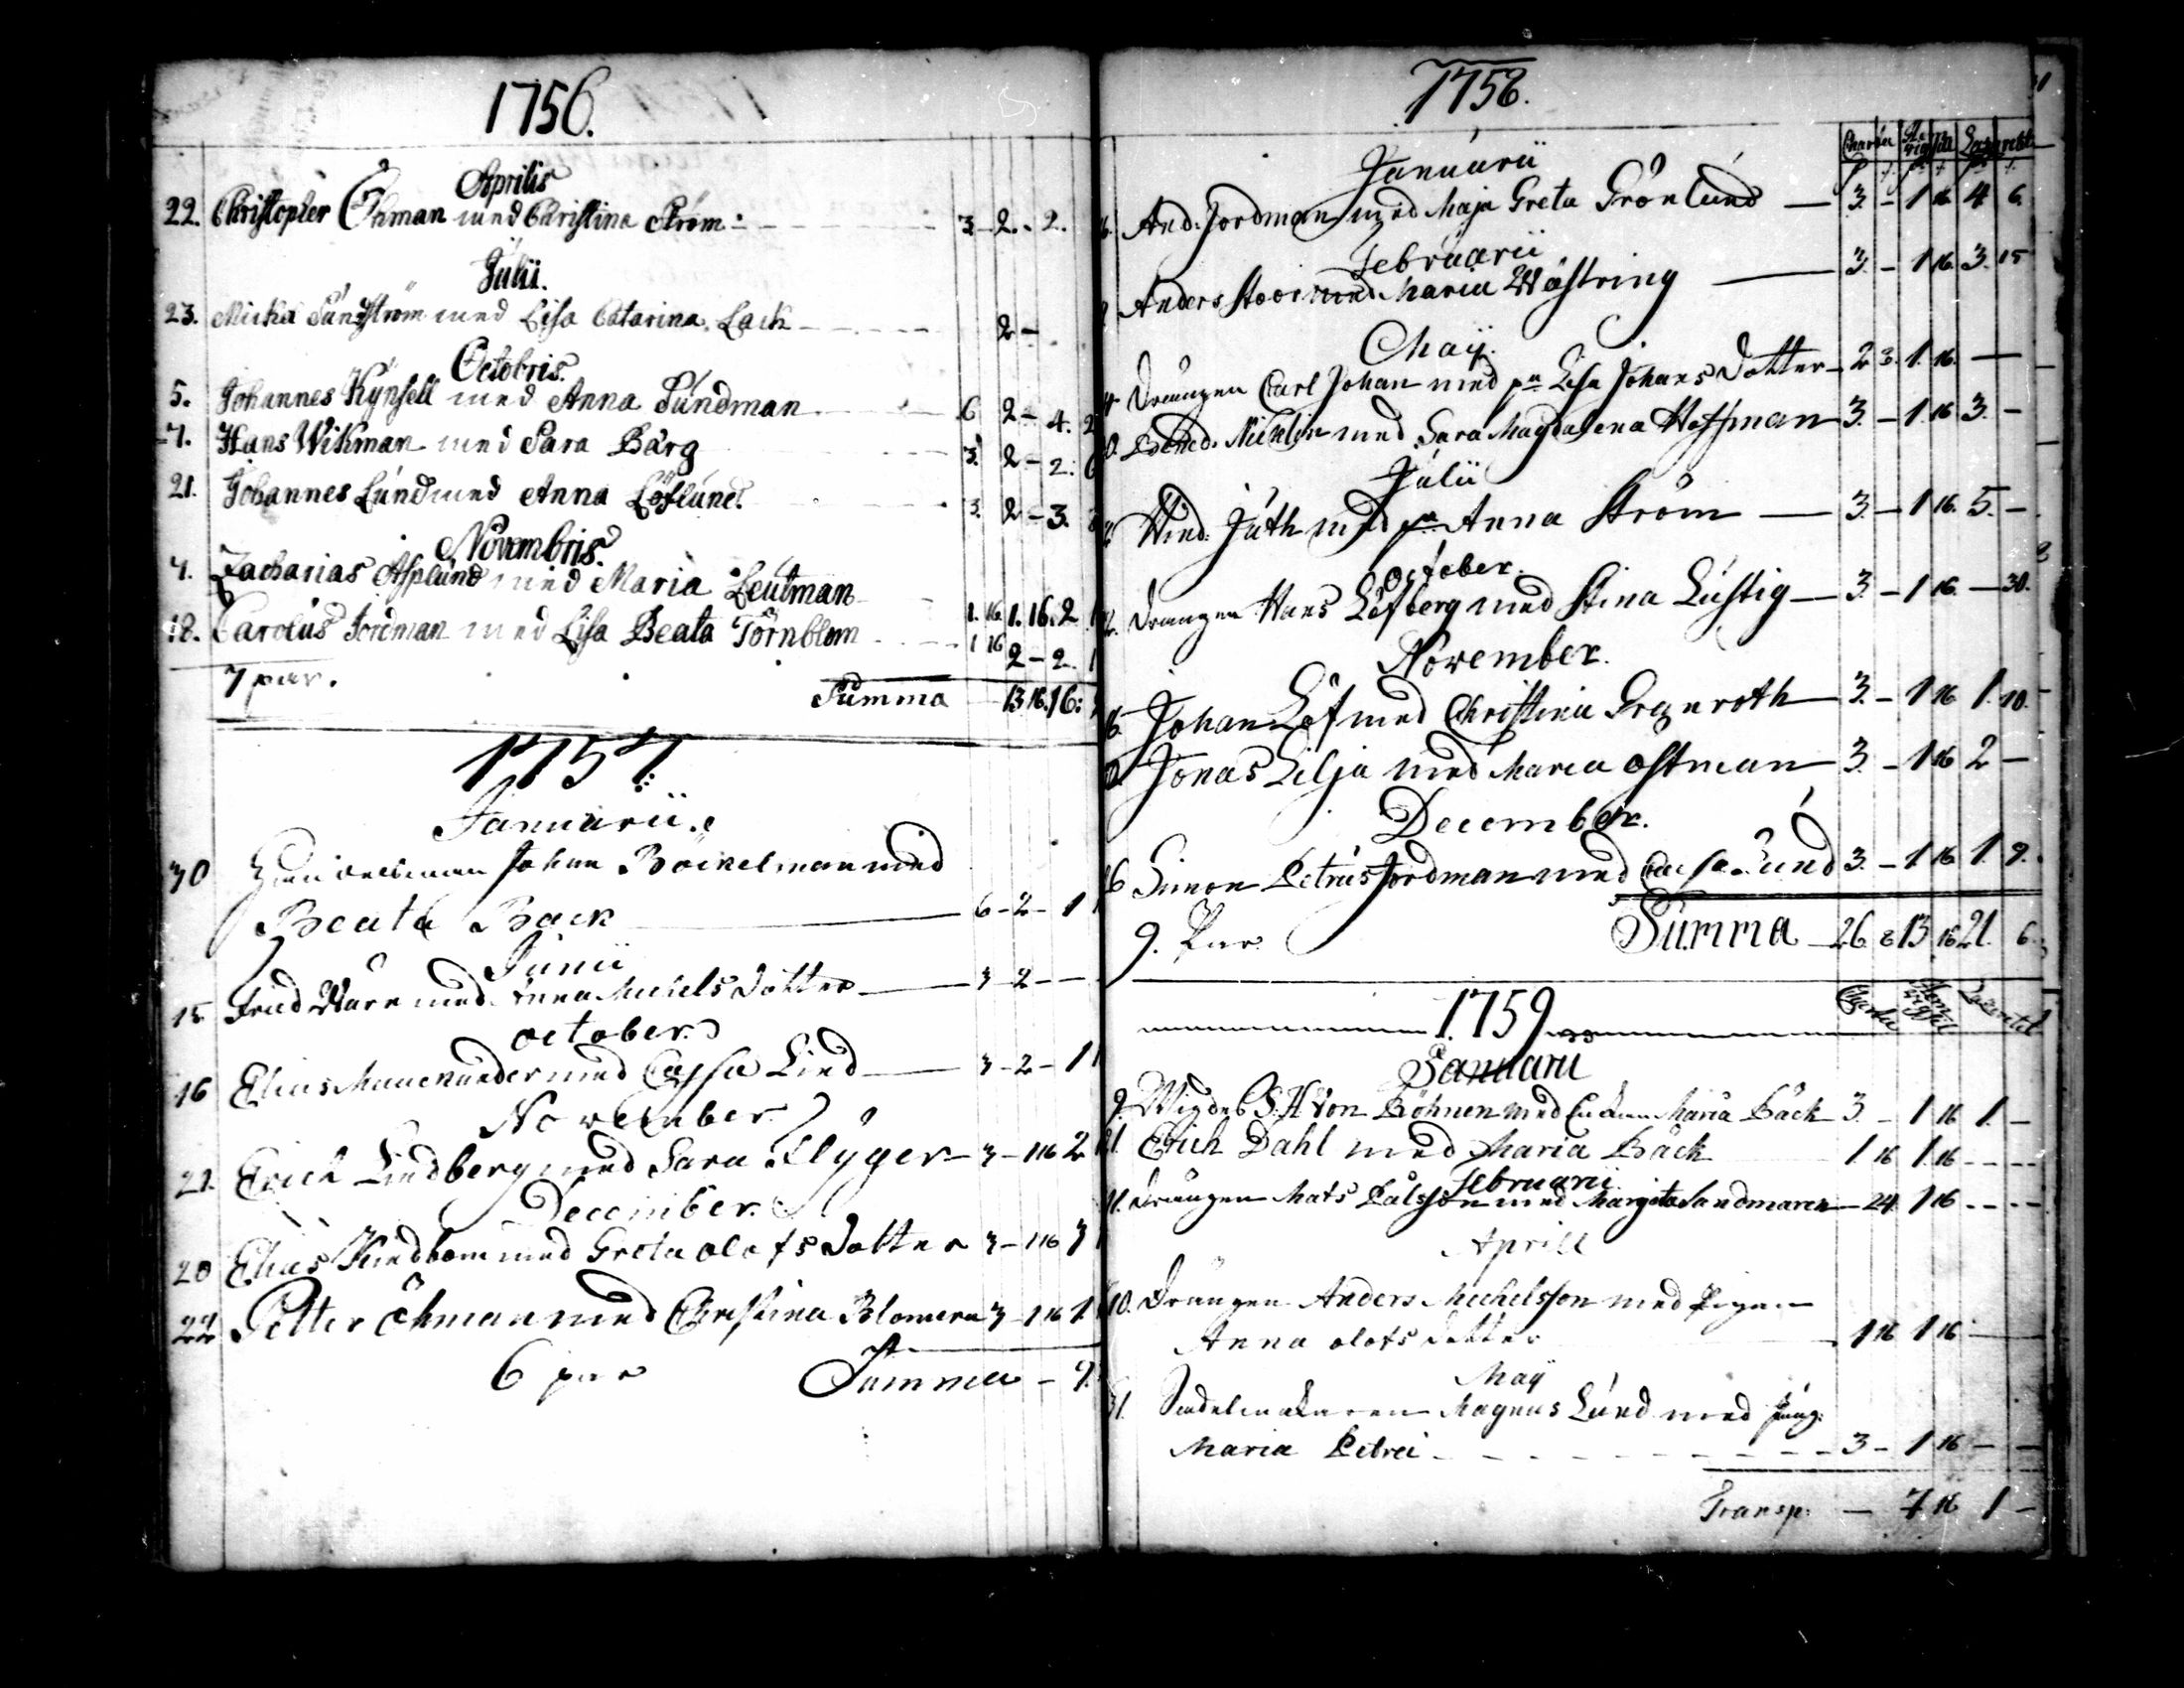 1756.
Aprilis
22. Christopher Öhman med Christina Ström. 3. 2. - 2.
Julii.
23. Mickel Sundström med Lisa Catarina Lack 2 -
Octobris.
5. Johannes Kynsell med Anna Sundman 6 2 - 4. 2
7. Hans Wikman med Sara Bärg 3. 2 - 2. 6
21. Johannes Lund med Anna Löflund. 3. 2 - 3.
Novembris.
4. Zacharias Asplund med Maria Leutman 1. 16. 1. 16. 2
18. Carolus Jordman med Lisa Beata Törnblom 1 16 2 - 2. 1
7 par. Summa 13 16. 16:
1757.
Januarii.
30 Johan Böckelman med
Beata Back 6 - 2 - 1
Junii
15. Fred Wäre med Anna Michels Dotter 3 - 2 - -
October.
16 Elias Munckunder med Cajsa Lind 3 - 2 - 1
November.
21. Erick Lindberg med Sara Flyger 3 - 1 16 2
December.
20 Elias Windbom med Greta Olofs Dotter 3 - 1 16 3
22 Petter Öhman med Christina Blomera 3 - 1 16 1
6 par Summa - 9.
1758.
Januarii
And. Jordman med Maja Greta Grönlund 3. - 1 16 4 6.
Februarii
Anders med Maria Wästring 3. - 1 16. 3. 15
Maij.
Drängen Carl Johan med pn Lisa Johans Dotter 2 3. 1. 16. -
Bened. Nicklin med Sara Magdalena Hoffman 3. - 1. 16 3. -
Julii
Wind. Jäth med pn Anna Ström 3. - 1 16. 5. -
October.
Drängen Hans Löfberg med Stina Lustig 3 - 1 16 - 30.
November.
Johan Löf med Christina Granroth 3. - 1 16 1. 10.
Jonas Lilja med Maria Östman 3. - 1 16 2 -
December.
16 Simon Petrus Jordman med Cajsa Lund 3. - 1 16 1. 9.
9. Par. Summa 26. 8 13 16 21. 6.
1759
Januarii
9. S. H. von Böhnen med Maria Bäck 3. - 1 16 1. -
21. Erich Dahl med Maria Bäck 1. 16 1. 16 - - - -
Februarii
11. Drängen Mats Pålsson med Margeta Sandmaren 24. 1 16 - - - -
Aprill
10. Drängen Anders Michelsson med Pigan
Anna Olofs Dotter 1 16 1 16 -
Maij
31. Sadelmakaren Magnus Lund med
Maria Petrei 3 - 1 16 - -
Transp: - 7 16 1 -